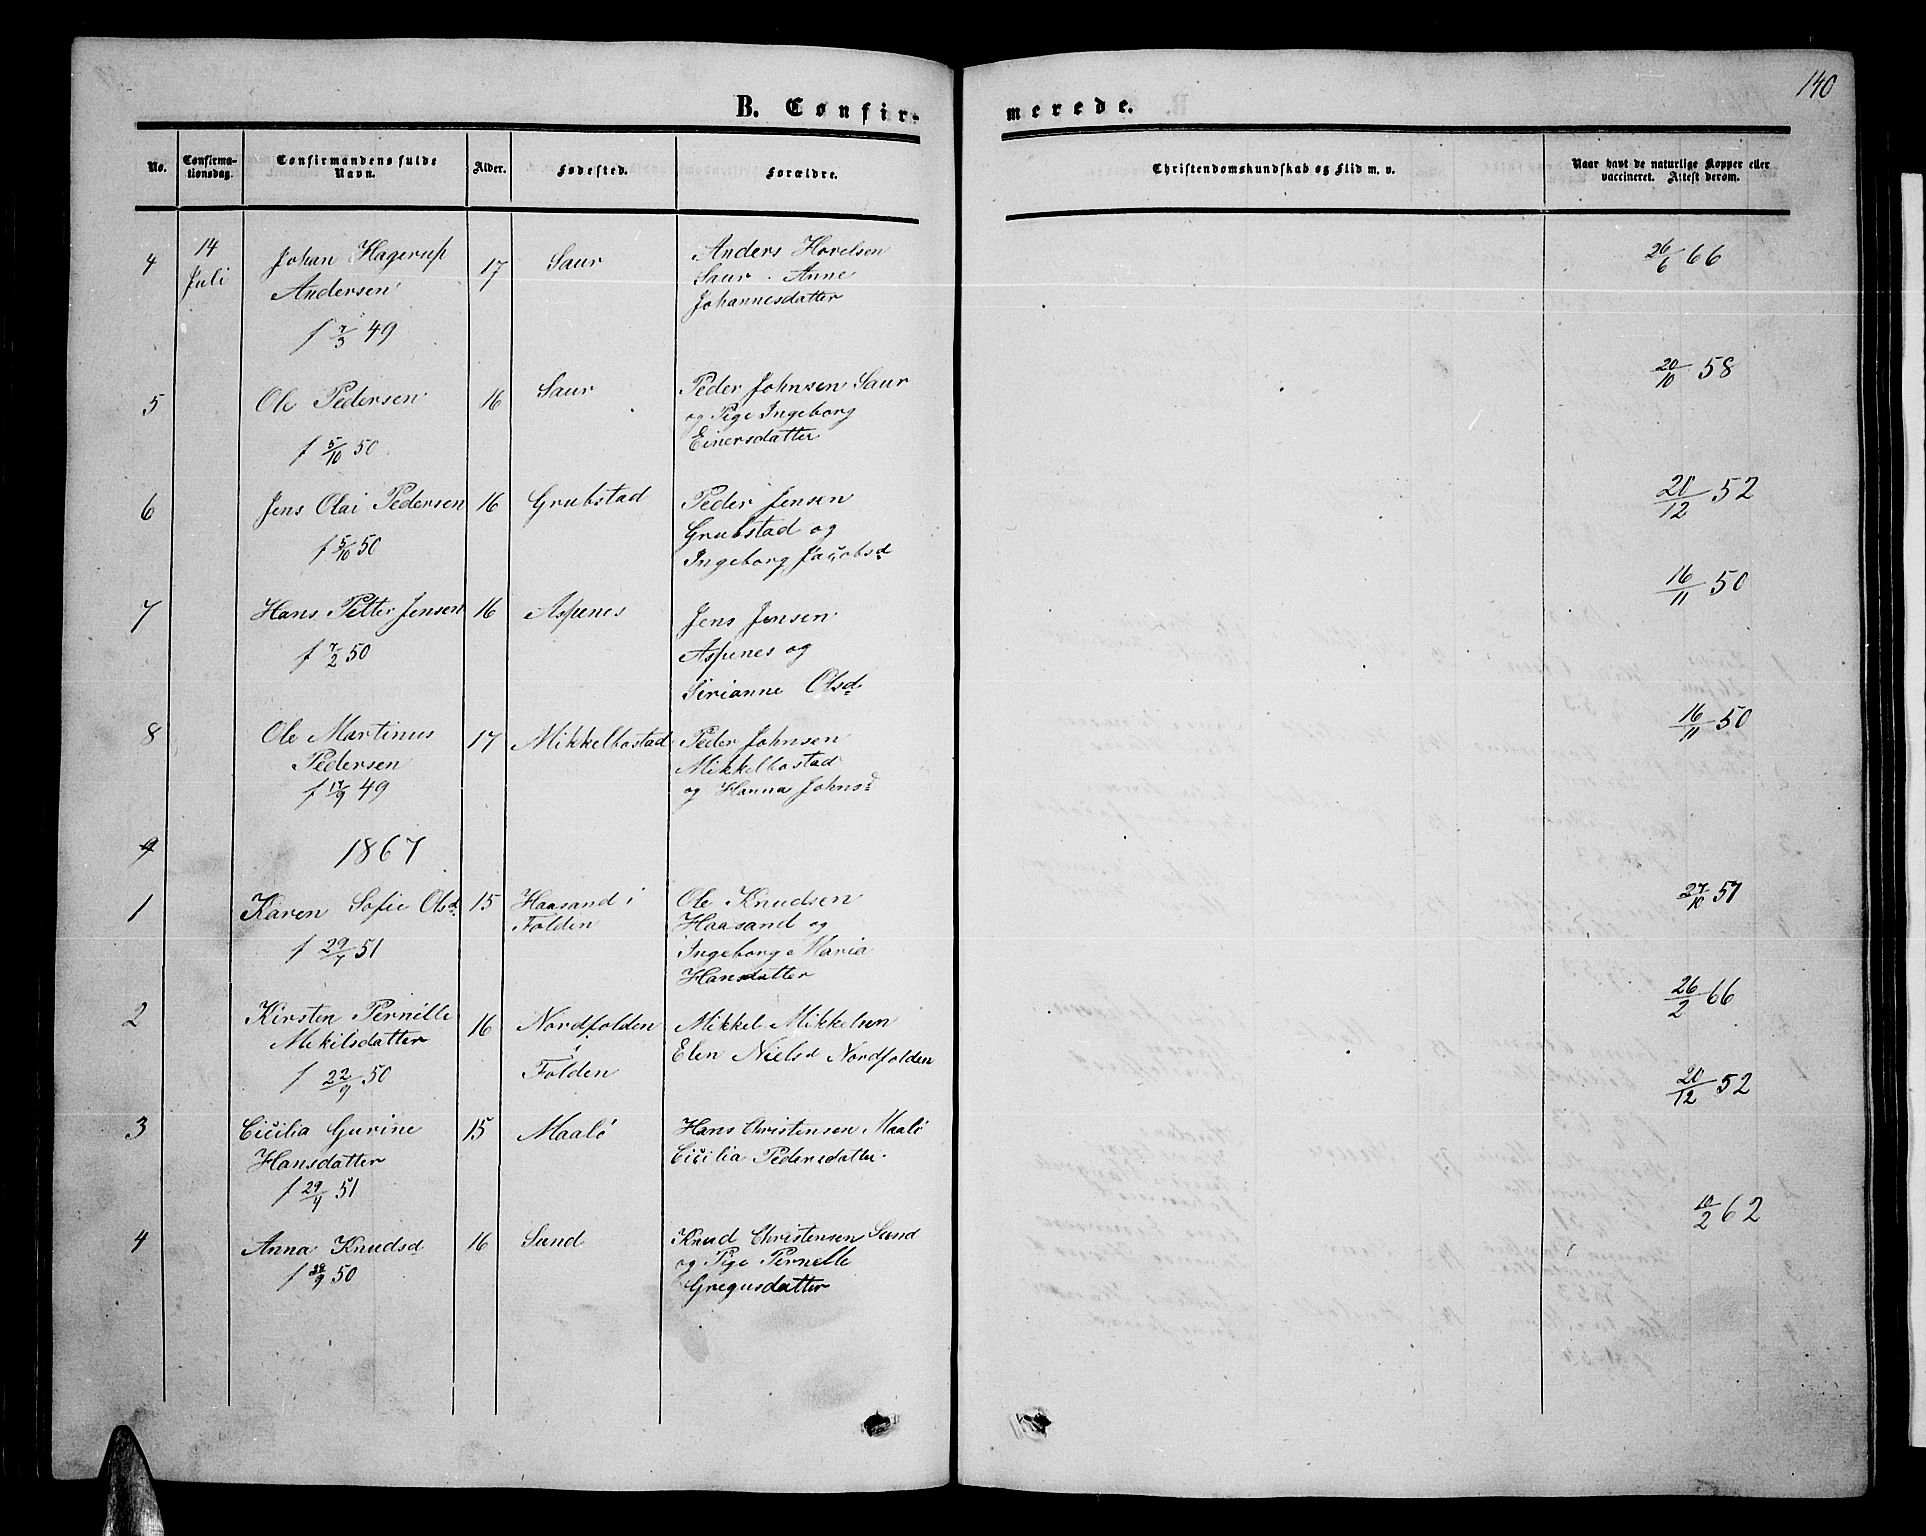 140
B. Confir-
merede.
No.
Confirma-
tionsdag.
Confirmandens fulde
Navn.
Alder.
Fødested.
Forældre.
Christendomskundskab og Flid m. v.
Naar havt de naturlige Kopper eller
vaccineret. Attest derom.
4 14 Juli Johan Hagerup 17 Saur Anders Hovelsen 26/6 66
Andersen Saur. Anne
f 7/3 49 Johannesdatter
5 Ole Pedersen 16 Saur Peder Johnsen Saur 20/10 58
og Pige Ingeborg
f 5/10 50 Einersdatter
6 Jens Olai Pedersen 16 Grubstad Peder Jensen 20/12 52
Grubstad og
f 5/10 50 Ingeborg Jacobsd
7 Hans Petter Jensen 16 Aspenes Jens Jensen 16/11 50
f 7/2 50 Aspenes og
Sirianne Olsd
8 Ole Martinus 17 Mikkelbostad Peder Johnsen 16/11 50
Pedersen Mikkelbostad
f 17/9 49 og Hanna Johnsd
9 1867
1 Karen Sofie Olsd 15 Haasand i Ole Knudsen 27/10 57
Folden Haasand og
f 29/4 51 Ingeborg Maria
Hansdatter
2 Kirsten Pernille 16 Nordfolden Mikkel Mikkelsen 26/2 66
Mekilsdatter i Elen Nielsd Nordfolden
f 22/9 50 Folden
3 Cicilia Gurine 15 Maalö Hans Christensen Maalö 20/12 52
Hansdatter Cicilia Pedersdatter.
f 29/4 51
4 Anna Knudsd 16 Sand Knud Christensen Sand 10/2 62
f 28/9 50 og Pige Pernelle
Gregusdatter